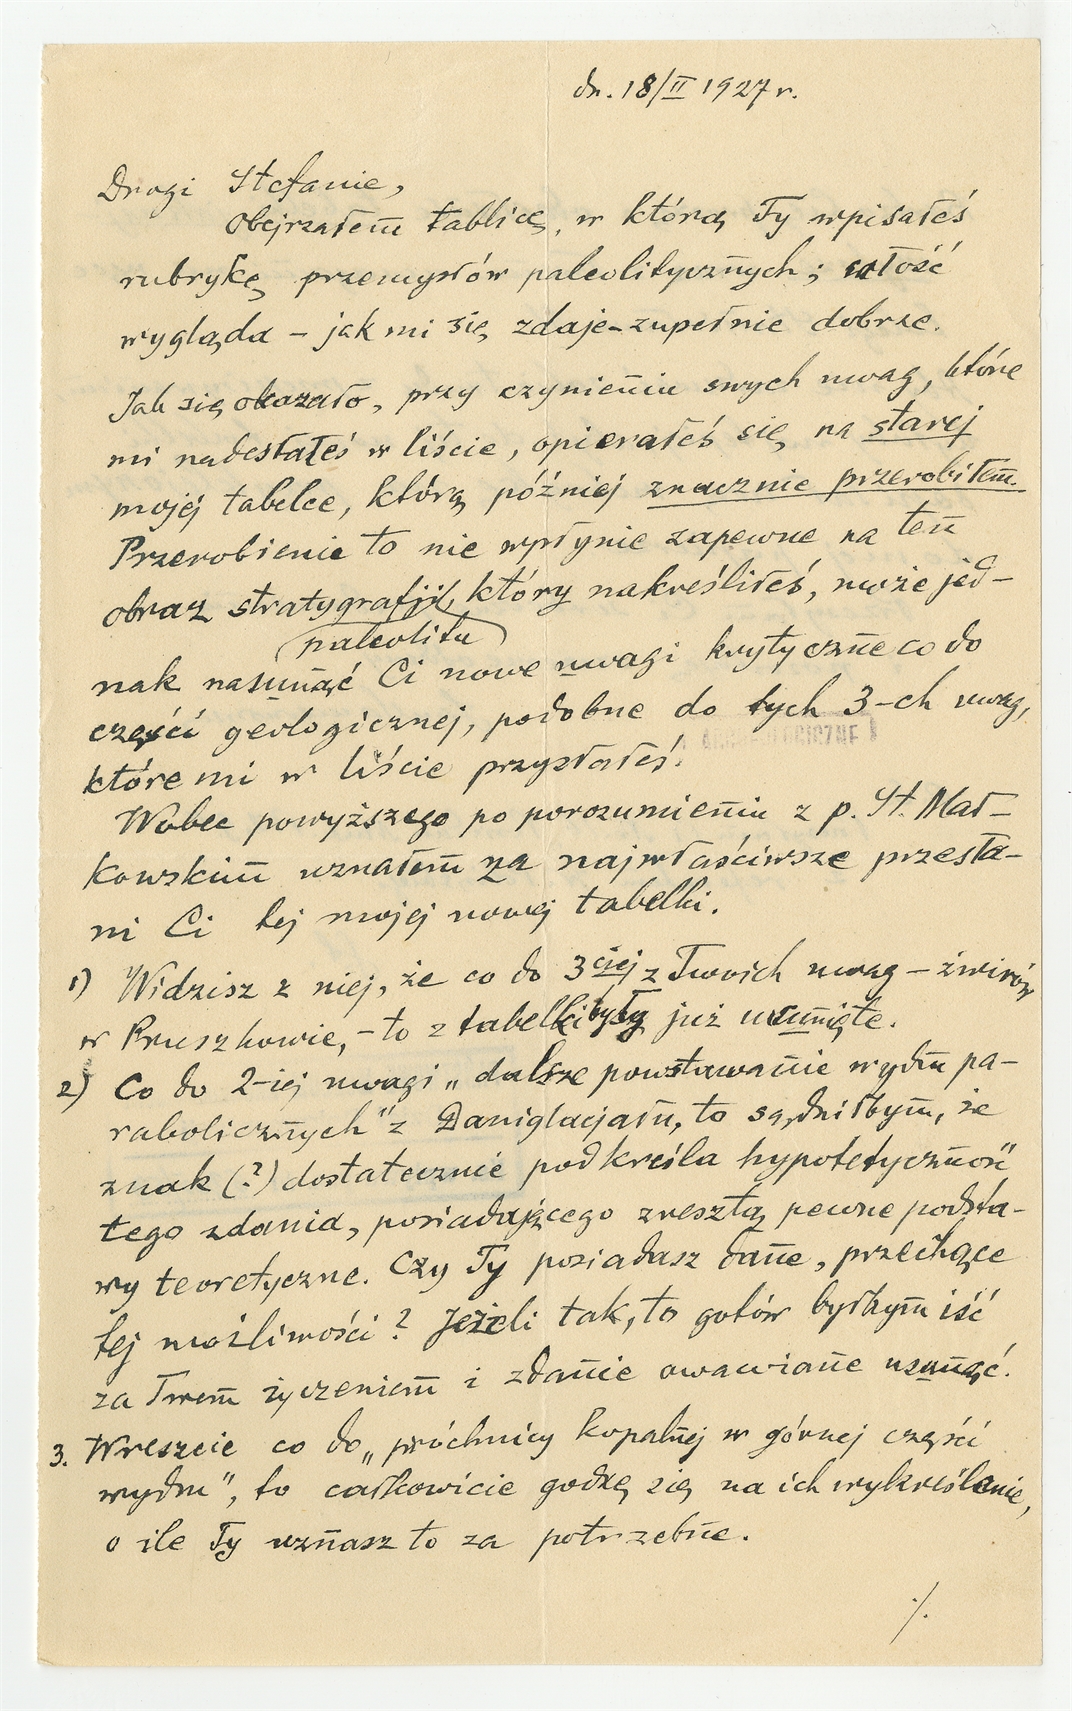 dn. 18/II 1927 r.
Drogi Stefanie,
Obejrzałem tablicę, w którą Ty wpisałeś
rubrykę przemysłów paleolitycznych; całość
wygląda – jak mi się zdaje – zupełnie dobrze.
Jak się okazało, przy czynieniu swych uwag, które
mi nadesłałeś w liście, opierałeś się na starej
mojej tabelce, którą później znacznie przerobiłem.
Przerobienie to nie wpłynie zapewne na ten
obraz stratygrafji, który nakreśliłeś, może jed-
paleolitu
nak nasunąć Ci nowe uwagi krytyczne co do
części geologicznej, podobne do tych 3-ch uwag,
ARCHEOLOGICZNE
które mi w liście przysłałeś.
Wobec powyższego po porozumieniu z p. St. Mał-
kowskim uznałem za najwłaściwsze przesła-
ni Ci tej mojej nowej tabelki.
1) Widzisz z niej, że co do 3ciej z Twoich uwag – żwirów
w Pruszkowie, – to z tabelki były już usunięte.
2) Co do 2-iej uwagi „dalsze powstawanie wydm pa-
rabolicznych" z Daniglacjału, to sądziłbym, że
znak (?) dostatecznie podkreśla hypotetyczność
tego zdania, posiadającego zresztą pewne podsta-
wy teoretyczne. Czy Ty posiadasz dane, przeczące
tej możliwości? Jeżeli tak, to gotów byłbym iść
za Twem życzeniem i zdanie omawiane usunąć.
3. Wreszcie co do „próchnicy kopalnej w górnej części
wydm", to całkowicie godzę się na ich wykreślenie,
o ile Ty uznasz to za potrzebne.
./.